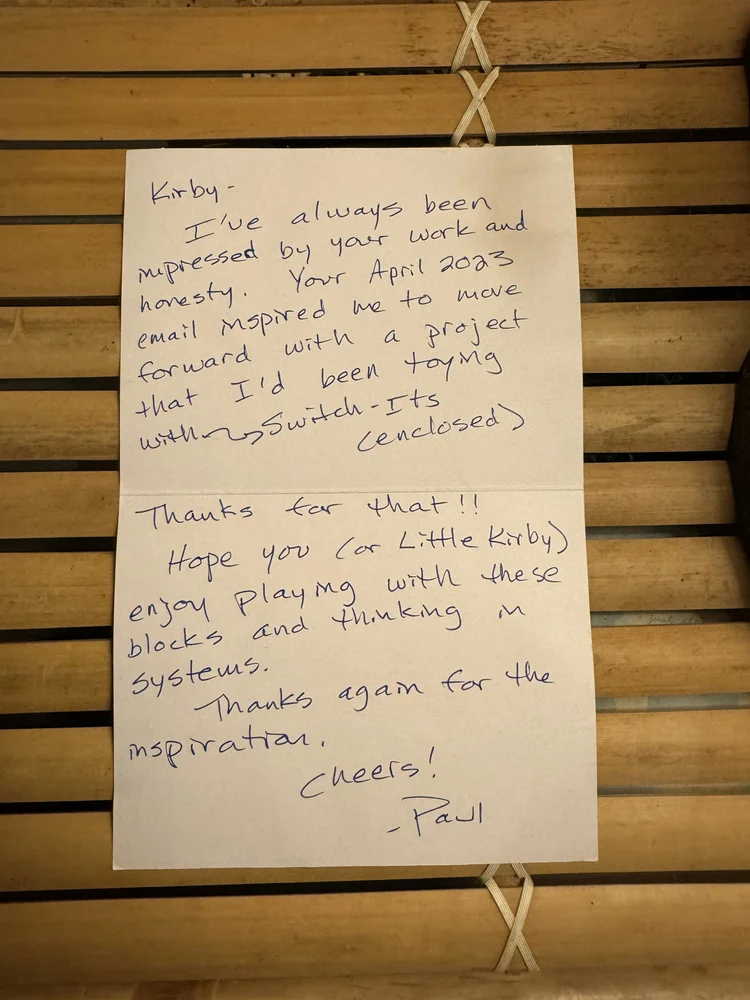 Kirby-
I've always been
impressed by your work and
honesty. Your April 2023
email inspired me to move
forward with a project
that I'd been toying
with Switch-Its
(enclosed)
Thanks for that!!
Hope you (or Little Kirby)
enjoy playing with these
blocks and thinking in
systems.
Thanks again for the
inspiration.
Cheers!
-Paul